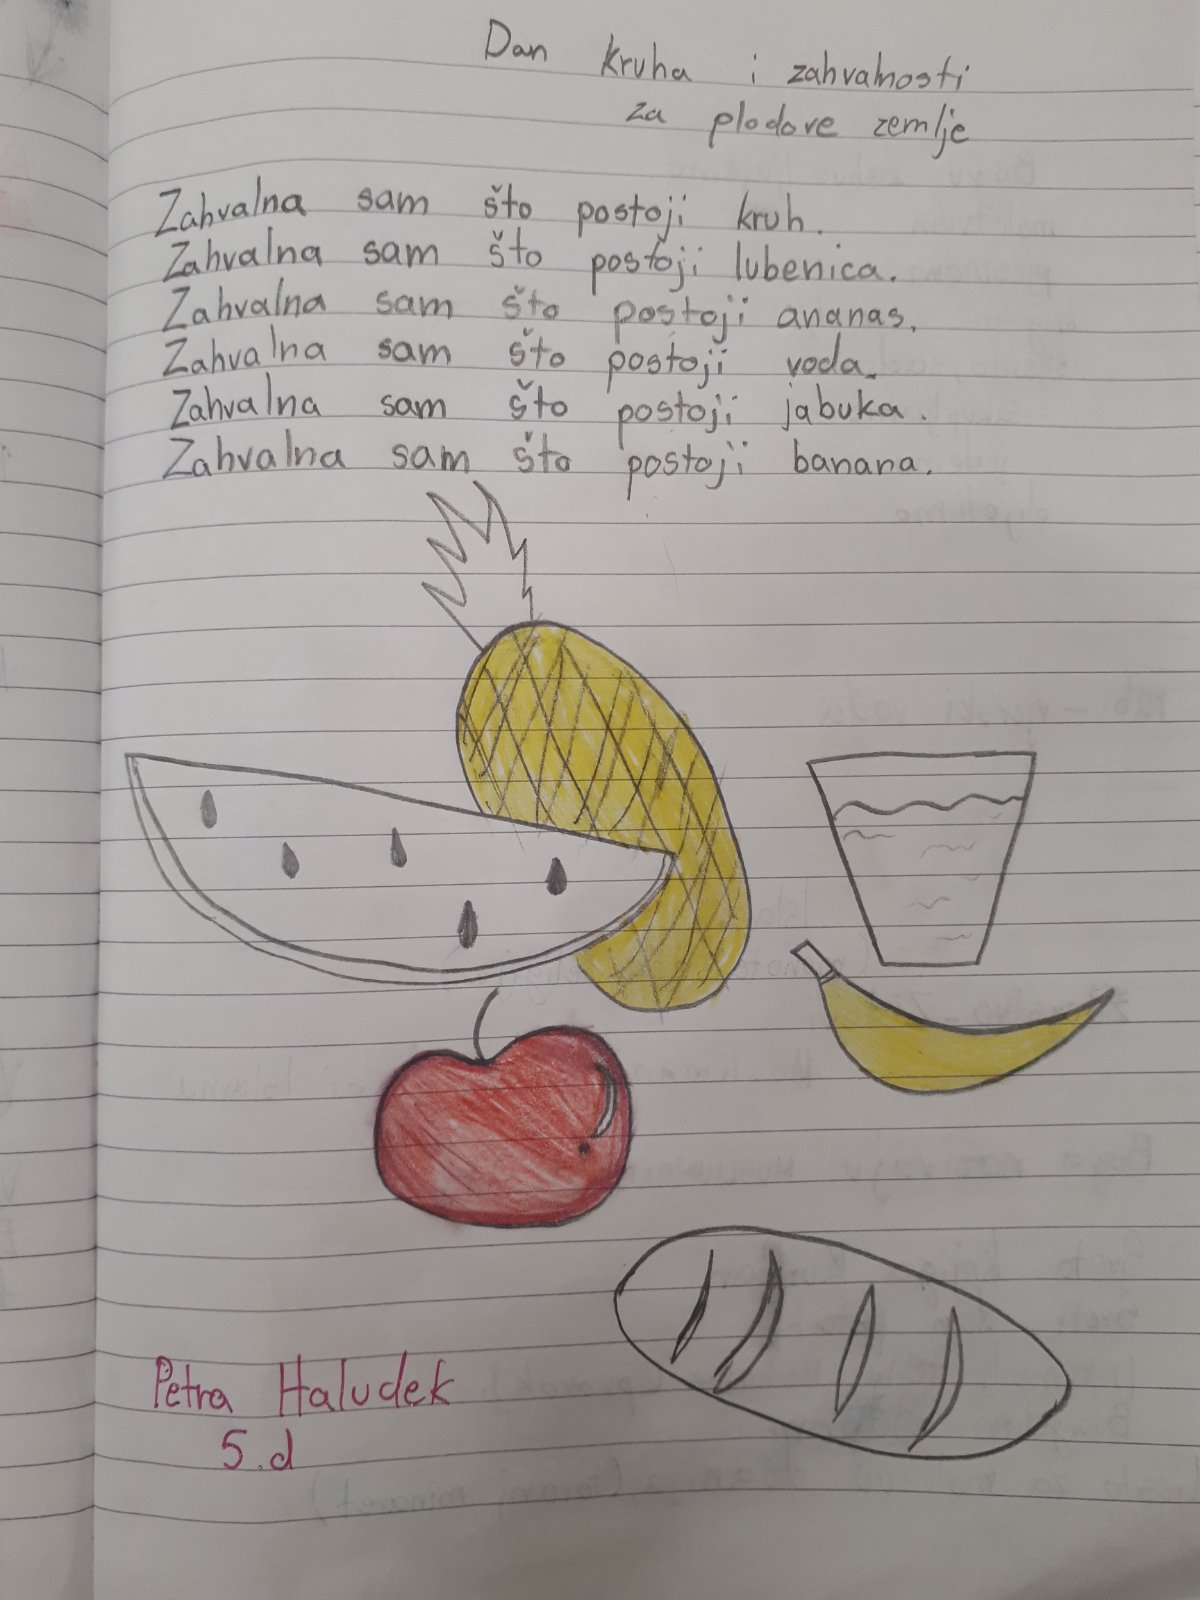 Dan kruha i zahvalnosti
za plodove zemlje
Zahvalna sam što postoji kruh.
Zahvalna sam što postoji lubenica.
Zahvalna sam što postoji ananas.
Zahvalna sam što postoji voda.
Zahvalna sam što postoji jabuka.
Zahvalna sam što postoji banana.
Petra Haludek
5.d